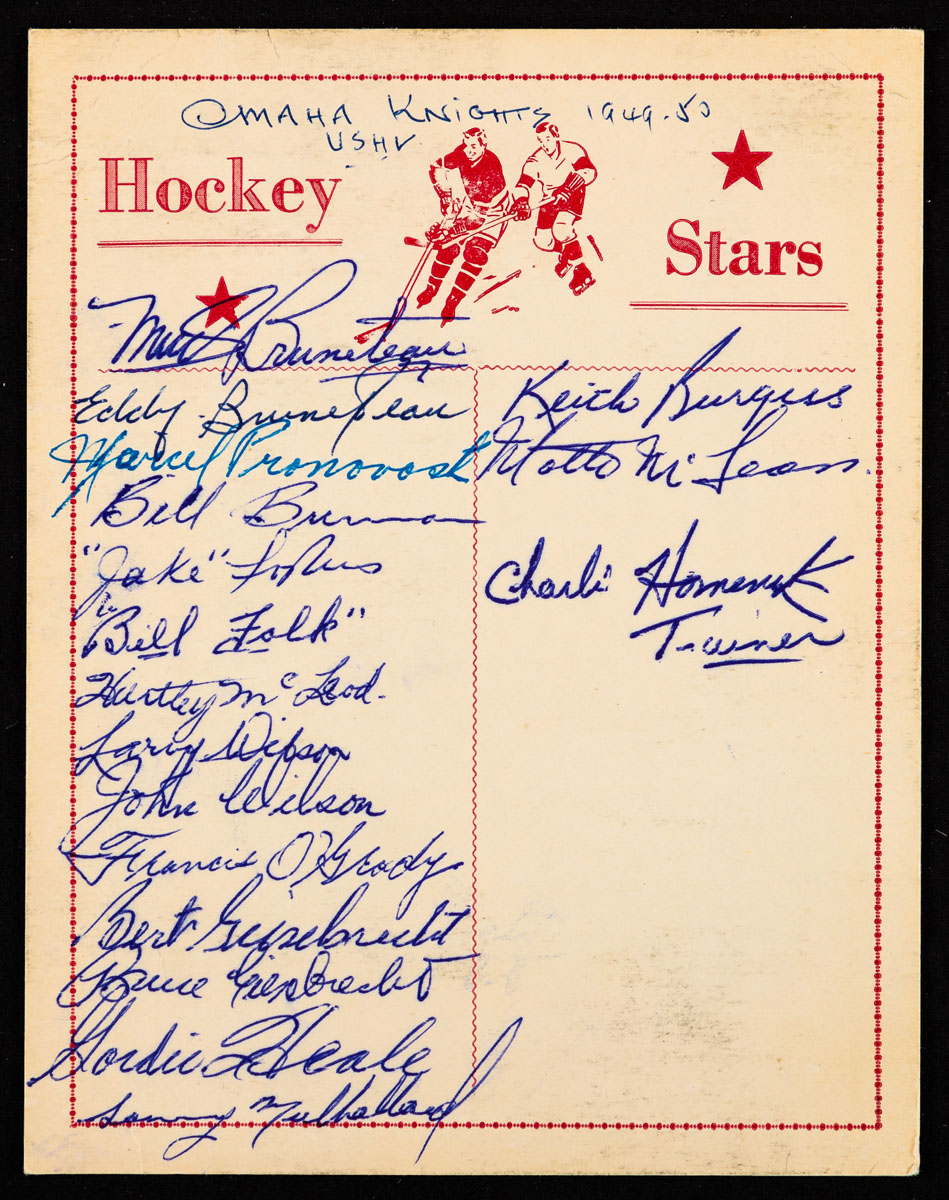 OMAHA KNIGHTS 1949-50
USHL
Hockey Stars
Mud Bruneteau
Eddy Bruneteau
Marcel Pronovost
Bill Brennan
"Jake" Forbes
"Bill Folk"
Hartley McLeod.
Larry Wilson
John Wilson
Francis O'Grady
Bert Giesebrecht
Bruce Giesbrecht
Gordie Heale
Sonny Mulholland
Keith Burgess
Motto McLean.
Charli Homenuk
Trainer